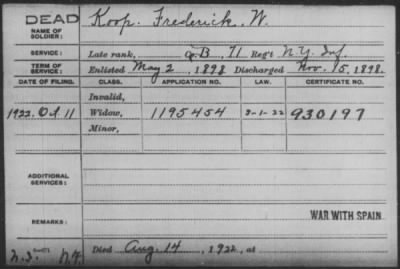 DEAD
NAME OF SOLDIER: Koop, Frederick, W.
SERVICE: Late rank, Co B, 71 Reg't N.Y. Inf.
TERM OF SERVICE: Enlisted May 2, 1898 Discharged Nov. 15, 1898.
DATE OF FILING. CLASS. APPLICATION NO. LAW. CERTIFICATE NO.
Invalid,
1922. Oct 11 Widow, 1195454 9-1-22 930197
Minor,
ADDITIONAL SERVICES:
REMARKS: WAR WITH SPAIN
Died Aug. 14, 1922, at